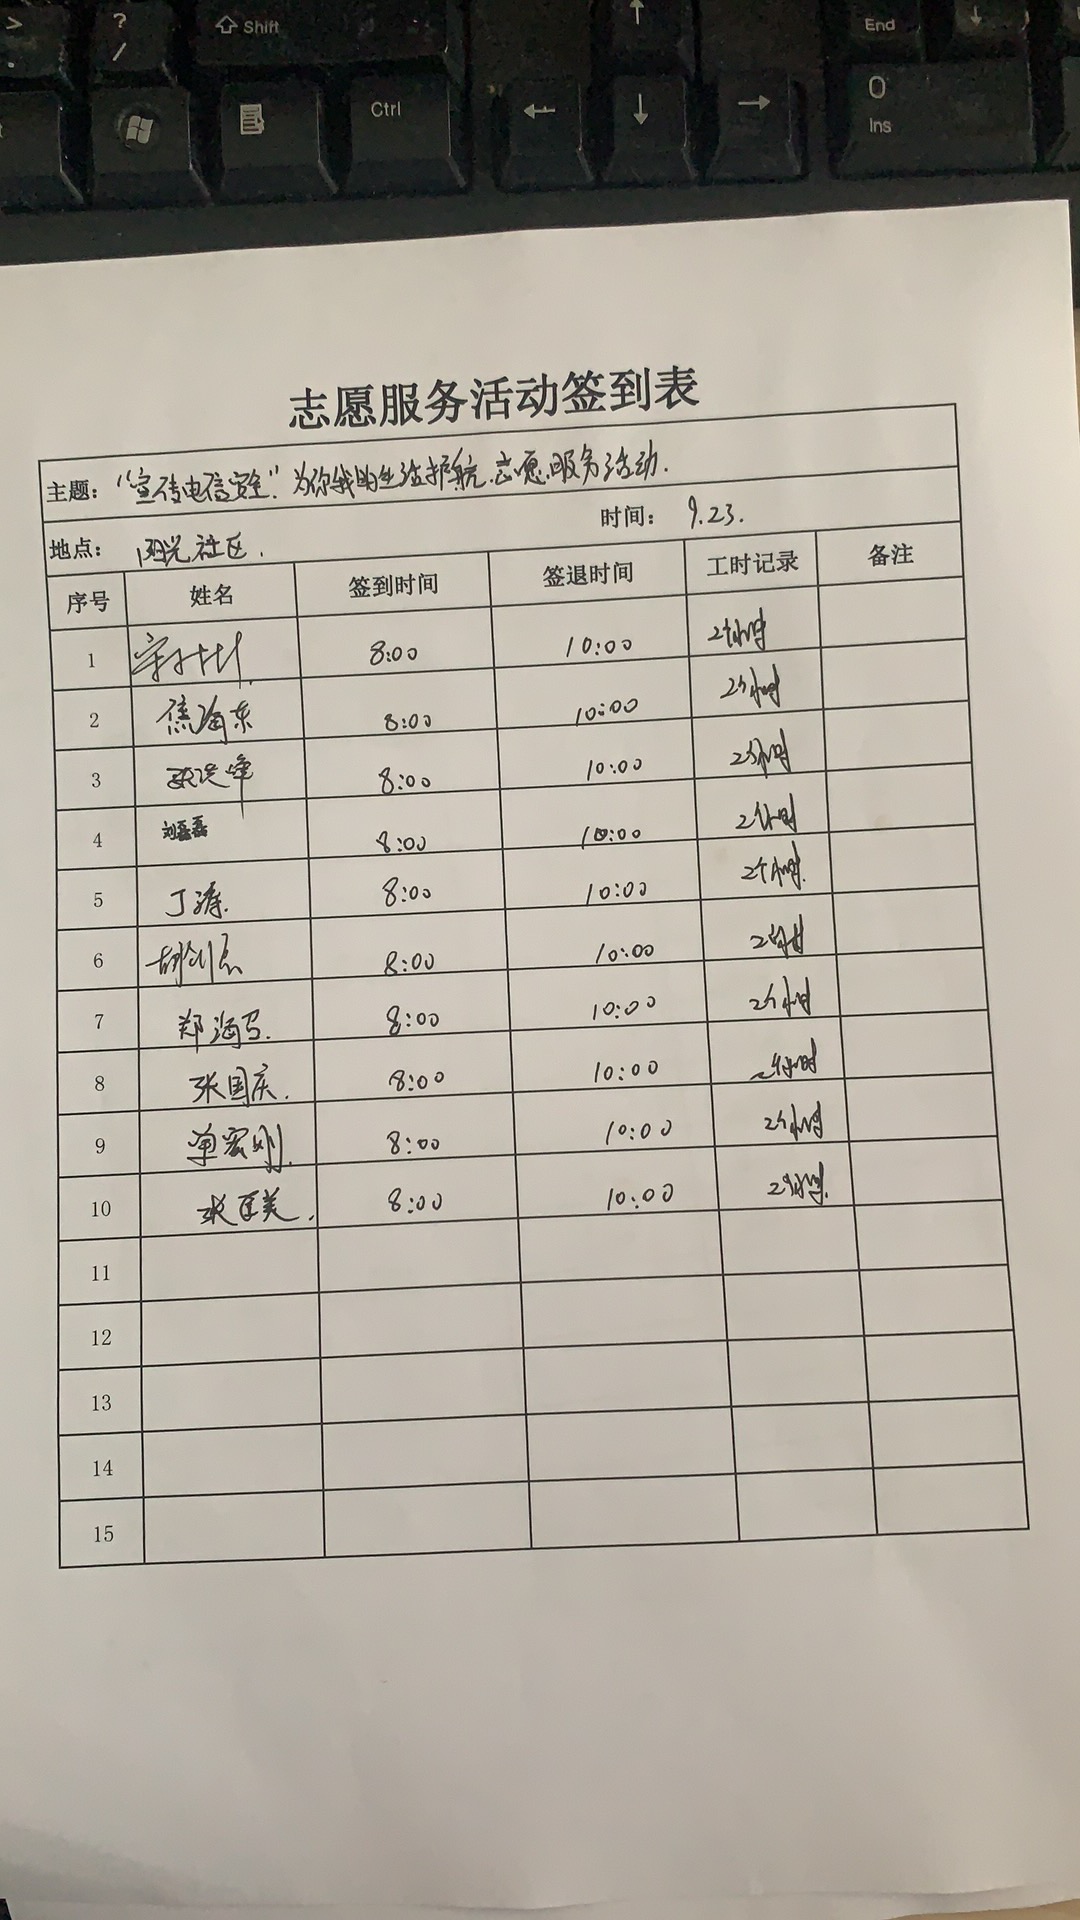 > ? Shift ↑ End ↓
. / 0
Ctrl ← ↓ → Ins
志愿服务活动签到表
主题：“宣传电信安全”.为你我的生活护航.志愿服务活动.
地点：阳光社区. 时间：9.23.
序号 姓名 签到时间 签退时间 工时记录 备注
1 8:00 10:00 2个小时
2 焦海东 8:00 10:00 2个小时
3 张洪峰 8:00 10:00 2个小时
4 刘磊磊 8:00 10:00 2个小时
5 丁涛. 8:00 10:00 2个小时.
6 8:00 10:00 2个小时
7 郑海 8:00 10:00 2个小时
8 张国庆. 8:00 10:00 2个小时
9 单宏刚. 8:00 10:00 2个小时
10 张美. 8:00 10:00 2个小时.
11
12
13
14
15